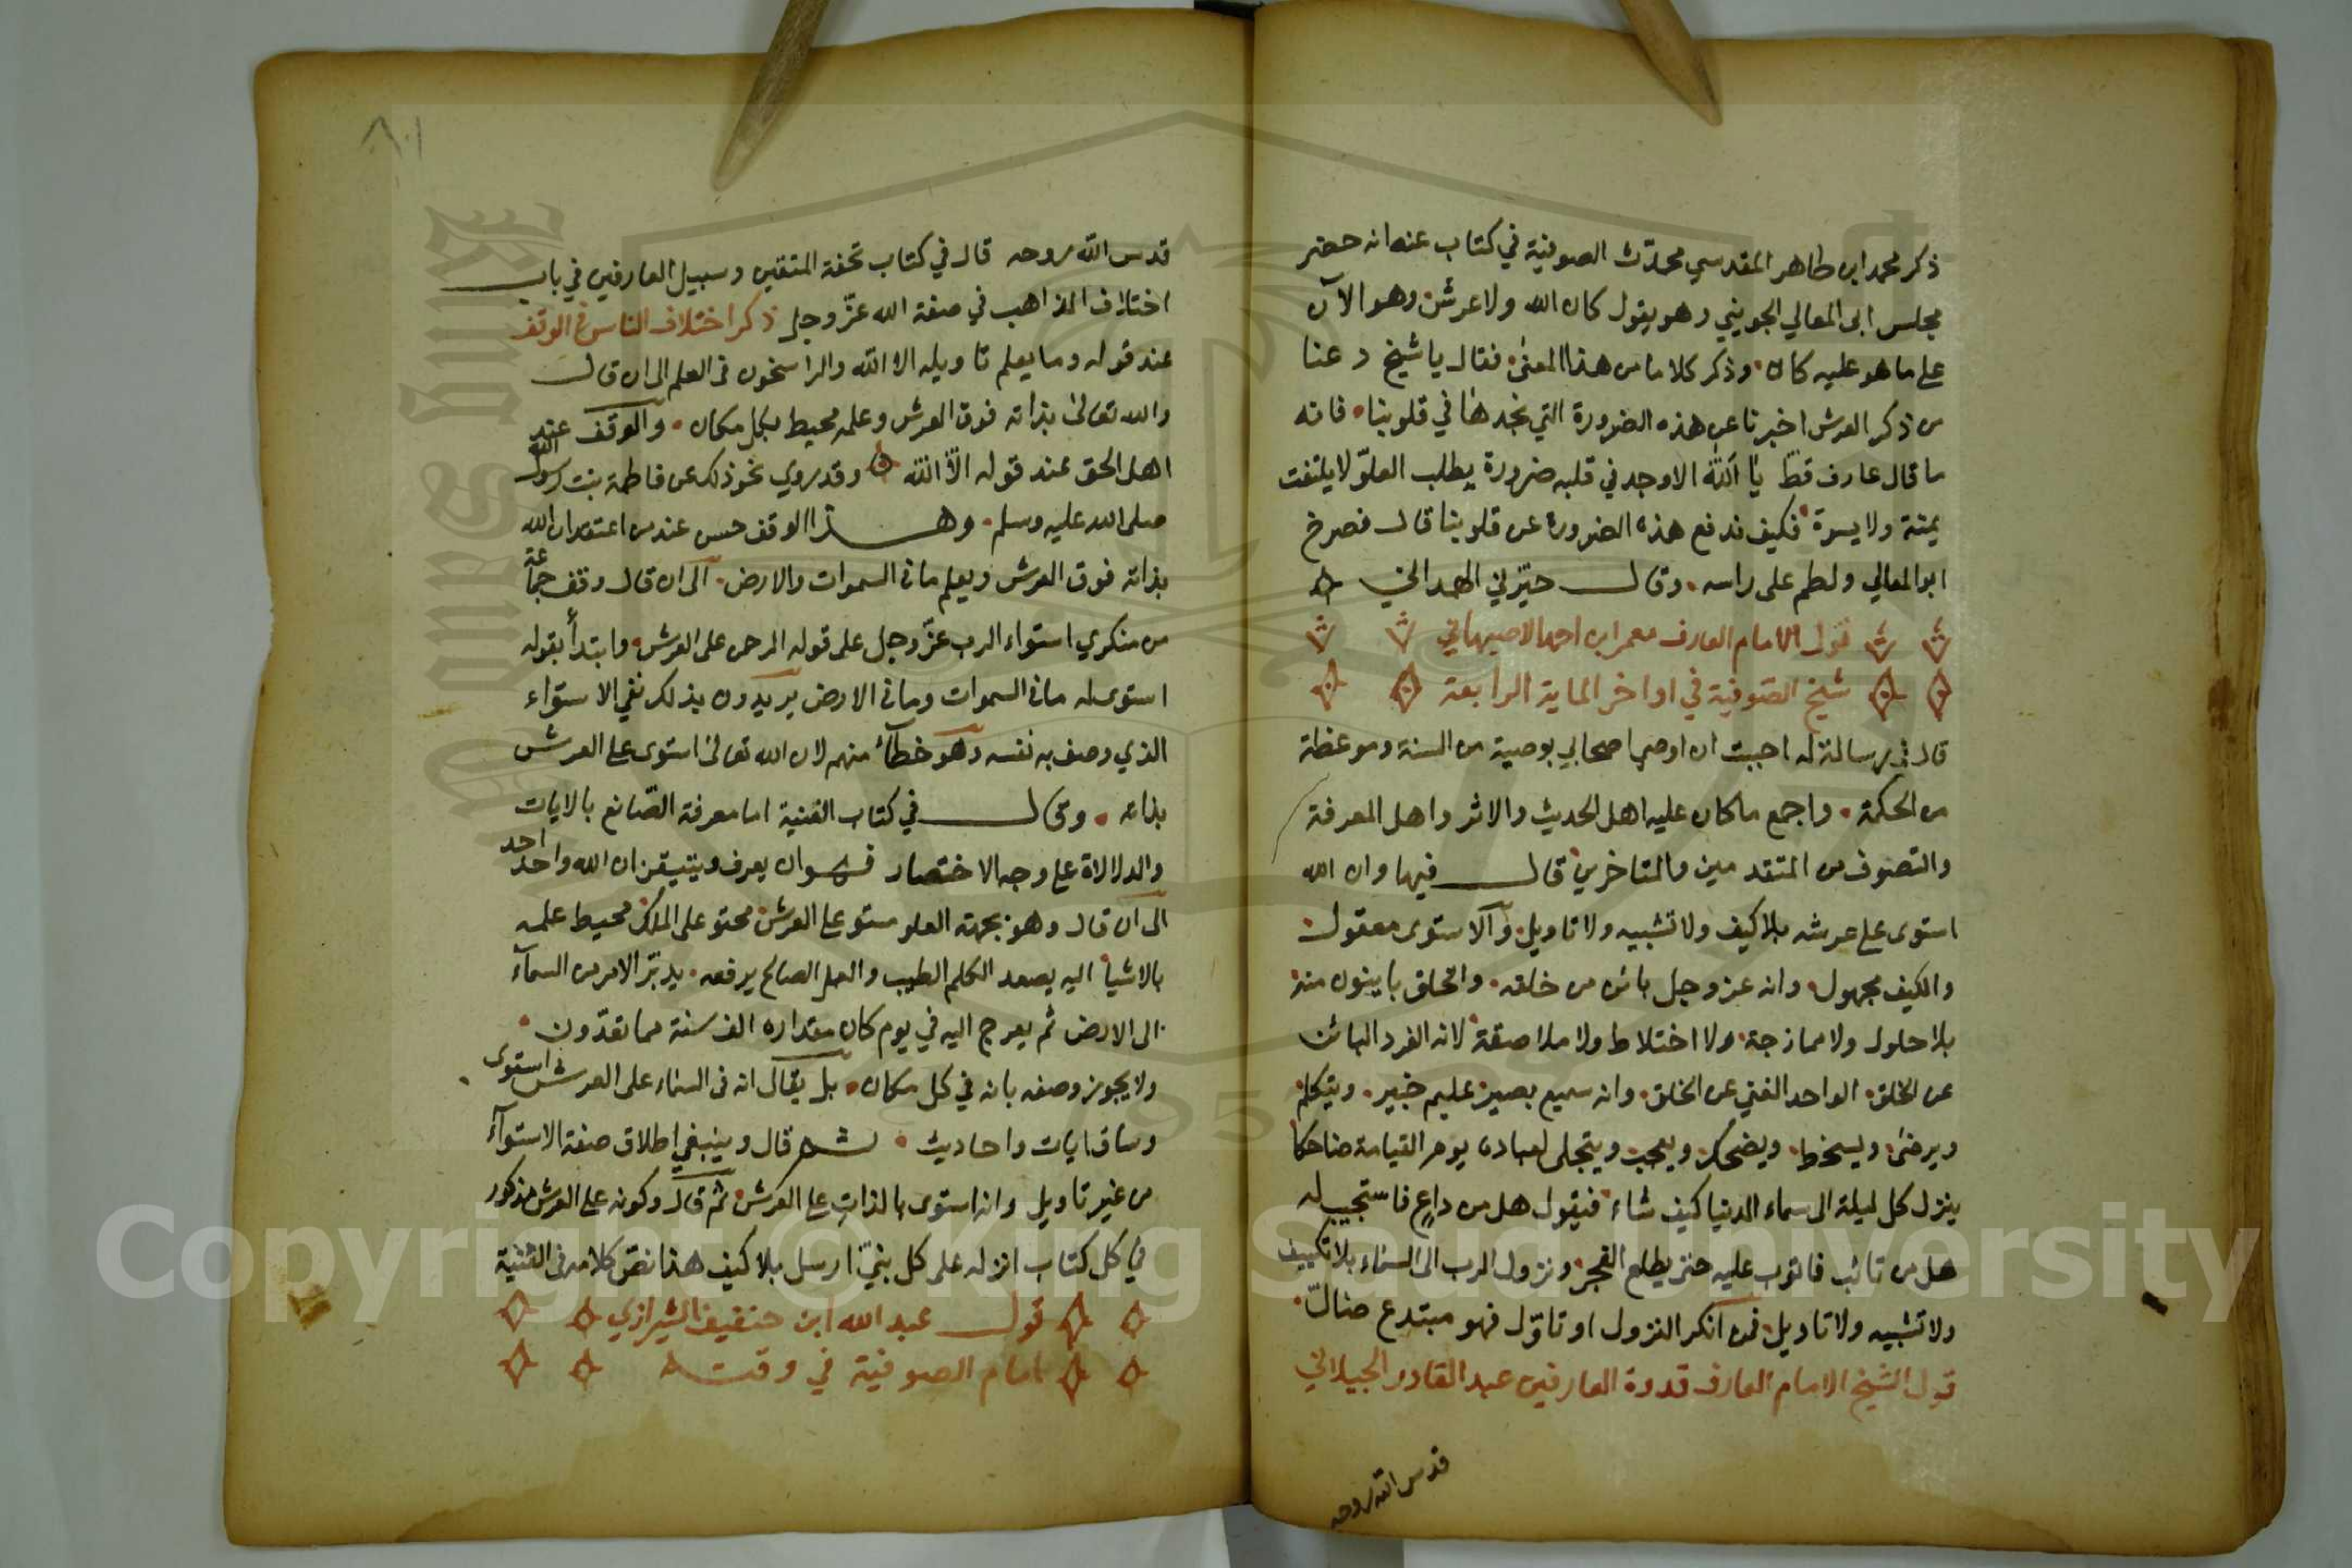 ذكر محمد ابن طاهر المقدسي محدّث الصوفية في كتاب عنه انه حضر
مجلس ابي المعالي الجويني وهو يقول كان الله ولا عرش وهو الآن
على ما هو عليه كان وذكر كلاما من هذا المعنى فقال يا شيخ دعنا
من ذكر العرش اخبرنا عن هذه الضرورة التي نجدها في قلوبنا فانه
ما قال عارف قطّ يا الله الا وجد في قلبه ضرورة يطلب العلوّ لا يلتفت
يمنة ولا يسرة فكيف ندفع هذه الضرورة عن قلوبنا قال فصرخ
ابو المعالي ولطم على راسه وقال حيّرني الهمداني
قول الامام العارف معمر ابن احمد الاصبهاني
شيخ الصوفية في اواخر الماية الرابعة
قال في رسالة له احببت ان اوصي اصحابي بوصية من السنة وموعظة
من الحكمة واجمع ما كان عليه اهل الحديث والاثر واهل المعرفة
والتصوف من المتقدمين والمتاخرين قال فيها وان الله
استوى على عرشه بلا كيف ولا تشبيه ولا تاويل والاستوى معقول
والكيف مجهول وانه عز وجل بائن من خلقه والخلق باينون منه
بلا حلول ولا ممازجة ولا اختلاط ولا ملاصقة لانه الفرد البائن
عن الخلق الواحد الغني عن الخلق وانه سميع بصير عليم خبير ويتكلم
ويرضى ويسخط ويضحك ويعجب ويتجلى لعباده يوم القيامة ضاحكا
ينزل كل ليلة الى سماء الدنيا كيف شاء فيقول هل من داع فاستجيب له
هل من تائب فاتوب عليه حتى يطلع الفجر ونزول الرب الى السماء بلا تكييف
ولا تشبيه ولا تاويل فمن انكر النزول او تاوّل فهو مبتدع ضالّ
قول الشيخ الامام العارف قدوة العارفين عبد القادر الجيلاني
قدس الله روحه
٨٠١
قدس الله روحه قال في كتاب تحفة المتقين وسبيل العارفين في باب
اختلاف المذاهب في صفة الله عزّ وجل ذكر اختلاف الناس في الوقف
عند قوله وما يعلم تاويله الا الله والراسخون في العلم الى ان قال
والله تعالى بذاته فوق العرش وعلمه محيط بكل مكان والوقف عند
اهل الحق عند قوله الّا الله وقد روي نحو ذلك عن فاطمة بنت رسول الله
صلى الله عليه وسلم وهذا الوقف حسن عند من اعتقد ان الله
بذاته فوق العرش ويعلم ما في السموات والارض الى ان قال وقف جماعة
من منكري استواء الرب عزّ وجل على قوله الرحمن على العرش وابتدأ بقوله
استوى له ما في السموات وما في الارض يريدون بذلك نفي الاستواء
الذي وصف به نفسه وهو خطأ منهم لان الله تعالى استوى على العرش
بذاته وقال في كتاب الغنية اما معرفة الصّانع بالايات
والدلالاة على وجه الاختصار فهو ان يعرف ويتيقن ان الله واحد احد
الى ان قال وهو بجهة العلو مستو على العرش محتو على الملك محيط علمه
بالاشيا اليه يصعد الكلم الطيب والعمل الصالح يرفعه يدبّر الامر من السماء
الى الارض ثم يعرج اليه في يوم كان مقداره الف سنة مما تعدّون
ولا يجوز وصفه بانه في كل مكان بل يقال انه في السماء على العرش استوى
وساق ايات واحاديث ثم قال وينبغي اطلاق صفة الاستواء
من غير تاويل وانه استوى بالذات على العرش ثم قال وكونه على العرش مذكور
في كل كتاب انزله على كل نبيّ ارسل بلا كيف هذا نصّ كلامه في الغنية
قول عبد الله ابن حنفيف الشيرازي
امام الصوفية في وقته
Copyright © King Saud University
King Saud University
1957